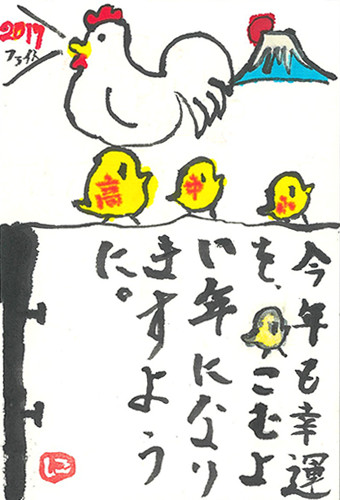 2017
ファイト
高
中
小
今年も幸運
を、こむよ
い年になり
ますよう
に。